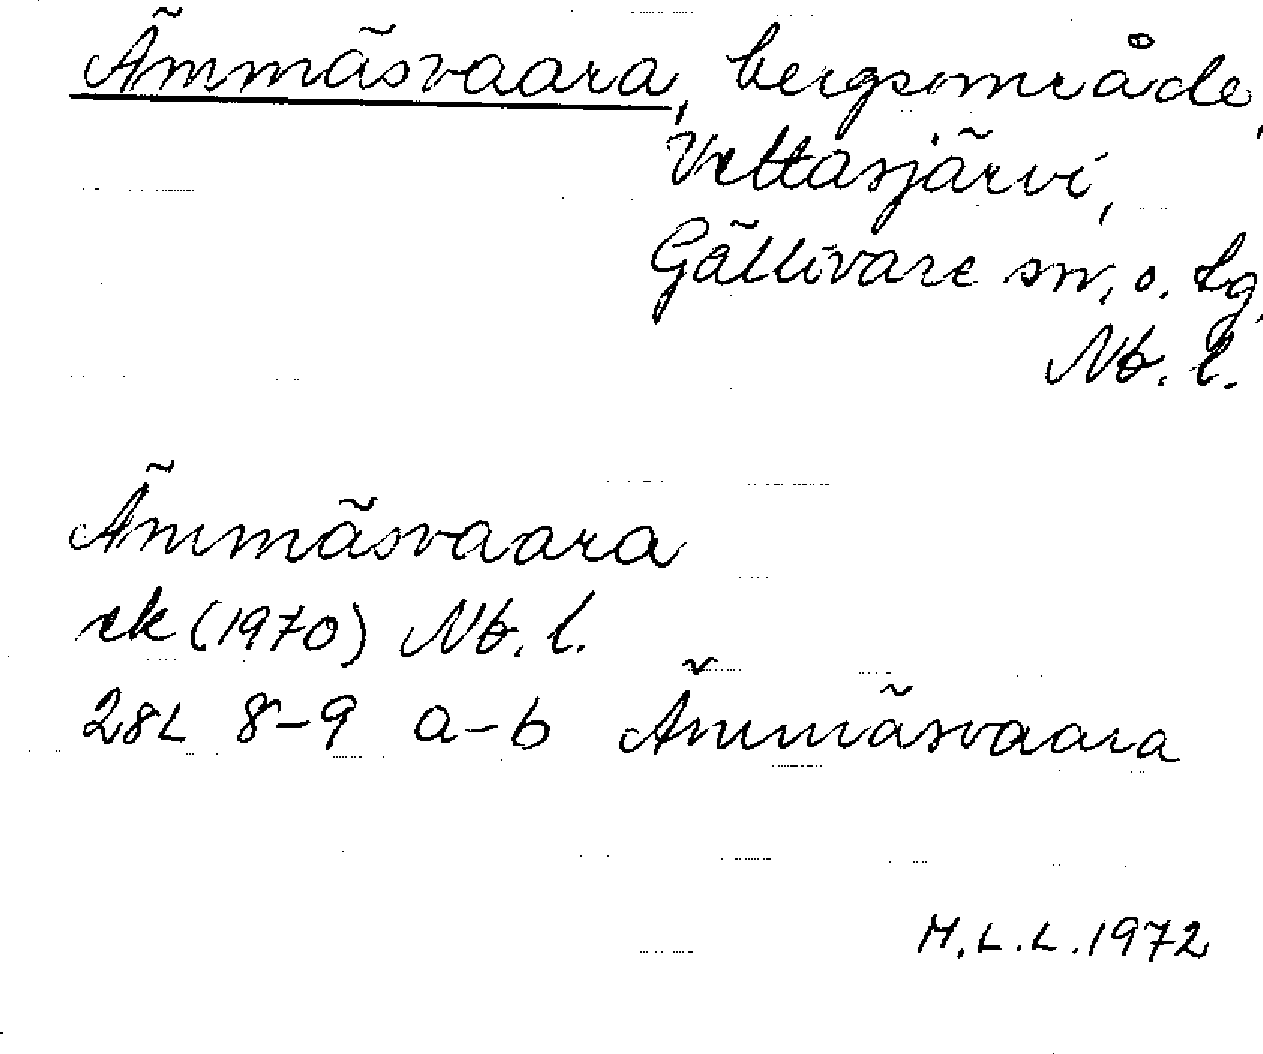 Ämmäsvaara, bergsområde,
Vettasjärvi,
Gällivare sn, o. tg,
Nb. l.
Ämmäsvaara
ek (1970) Nb. l.
28L 8-9 a-b Ämmäsvaara
M.L.L. 1972